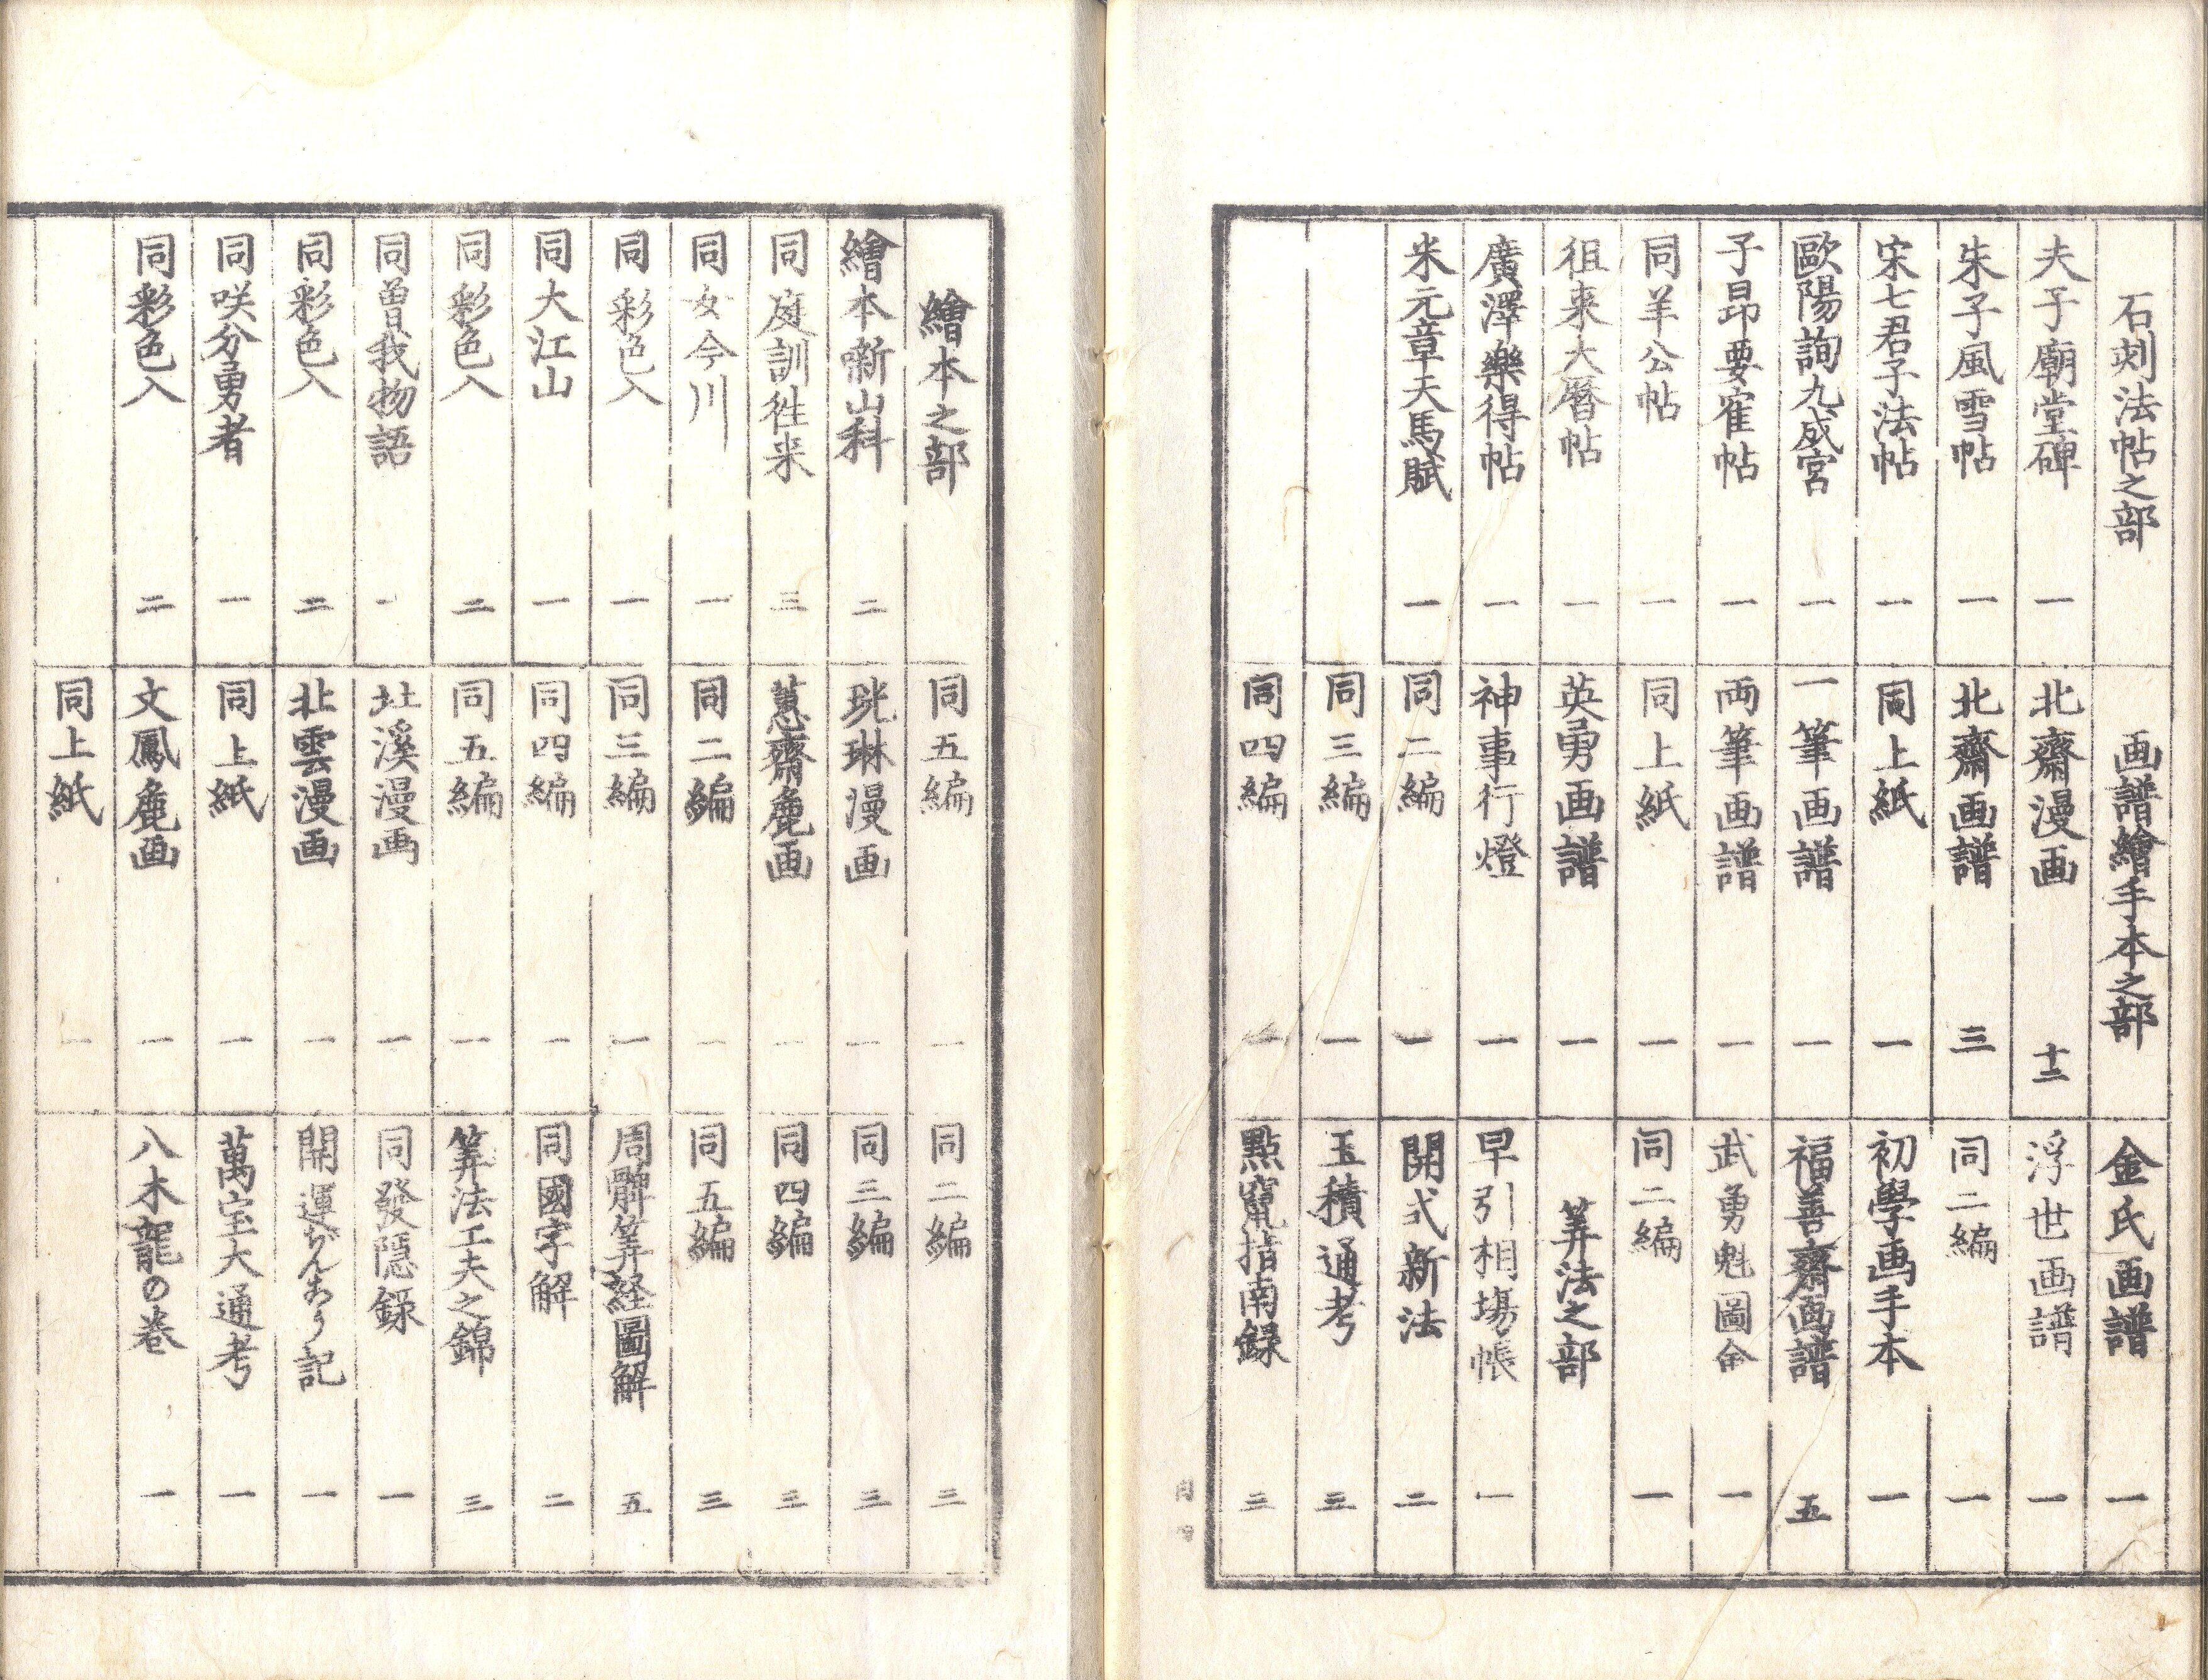 石刻法帖之部
夫子廟堂碑 一
朱子風雪帖 一
宋七君子法帖 一
歐陽詢九成宮 一
子昂要寉帖 一
同羊公帖 一
徂来大暦帖 一
廣澤樂得帖 一
米元章天馬賦 一
画譜繪手本之部
北齋漫画 十二
北齋画譜 三
同上紙 一
一筆画譜 一
両筆画譜 一
同上紙 一
英勇画譜 一
神事行燈 一
同二編 一
同三編 一
同四編 一
金氏画譜 一
浮世画譜 一
同二編 一
初學画手本 一
福善齋画譜 五
武勇魁圖会 一
同二編 一
筭法之部
早引相場帳 一
開式新法 二
玉積通考 三
點竄指南録 三
繪本之部
繪本噺山科 二
同庭訓徃来 三
同女今川 一
同彩色入 一
同大江山 一
同彩色入 二
同曽我物語 一
同彩色入 二
同咲分勇者 一
同彩色入 二
同五編 一
珖琳漫画 一
蕙齋麁画 一
同二編 一
同三編 一
同四編 一
同五編 一
北溪漫画 一
北雲漫画 一
同上紙 一
文鳳麁画 一
同上紙 一
同二編 三
同三編 三
同四編 三
同五編 三
周髀筭経圖解 五
同國字解 二
筭法工夫之錦 三
同發隠録 一
開運ぢんこう記 一
萬宝大通考 一
八木龍の巻 一